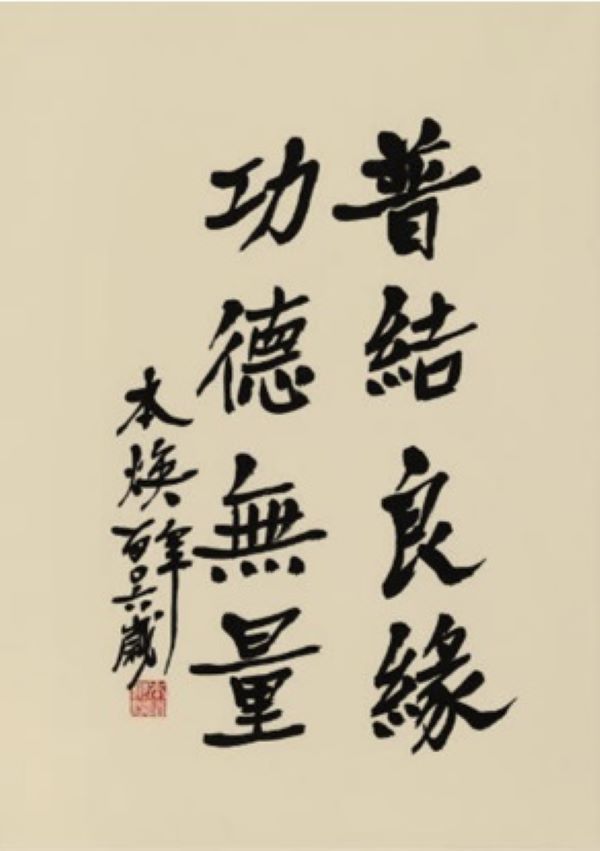 普結良緣
功德無量
本煥
百〇六歲